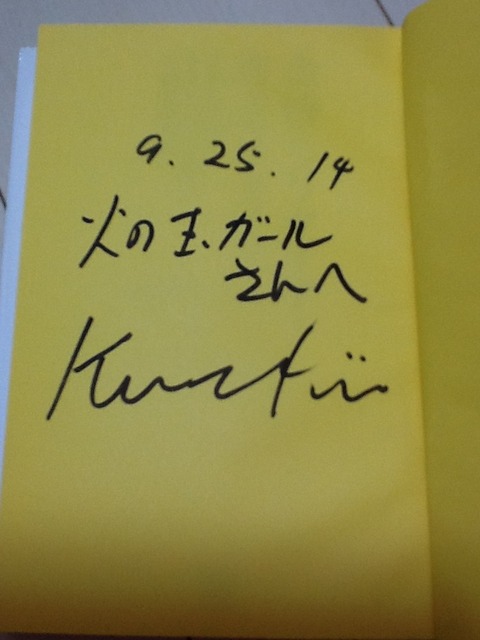 9. 25. 14
火の玉ガール
さんへ